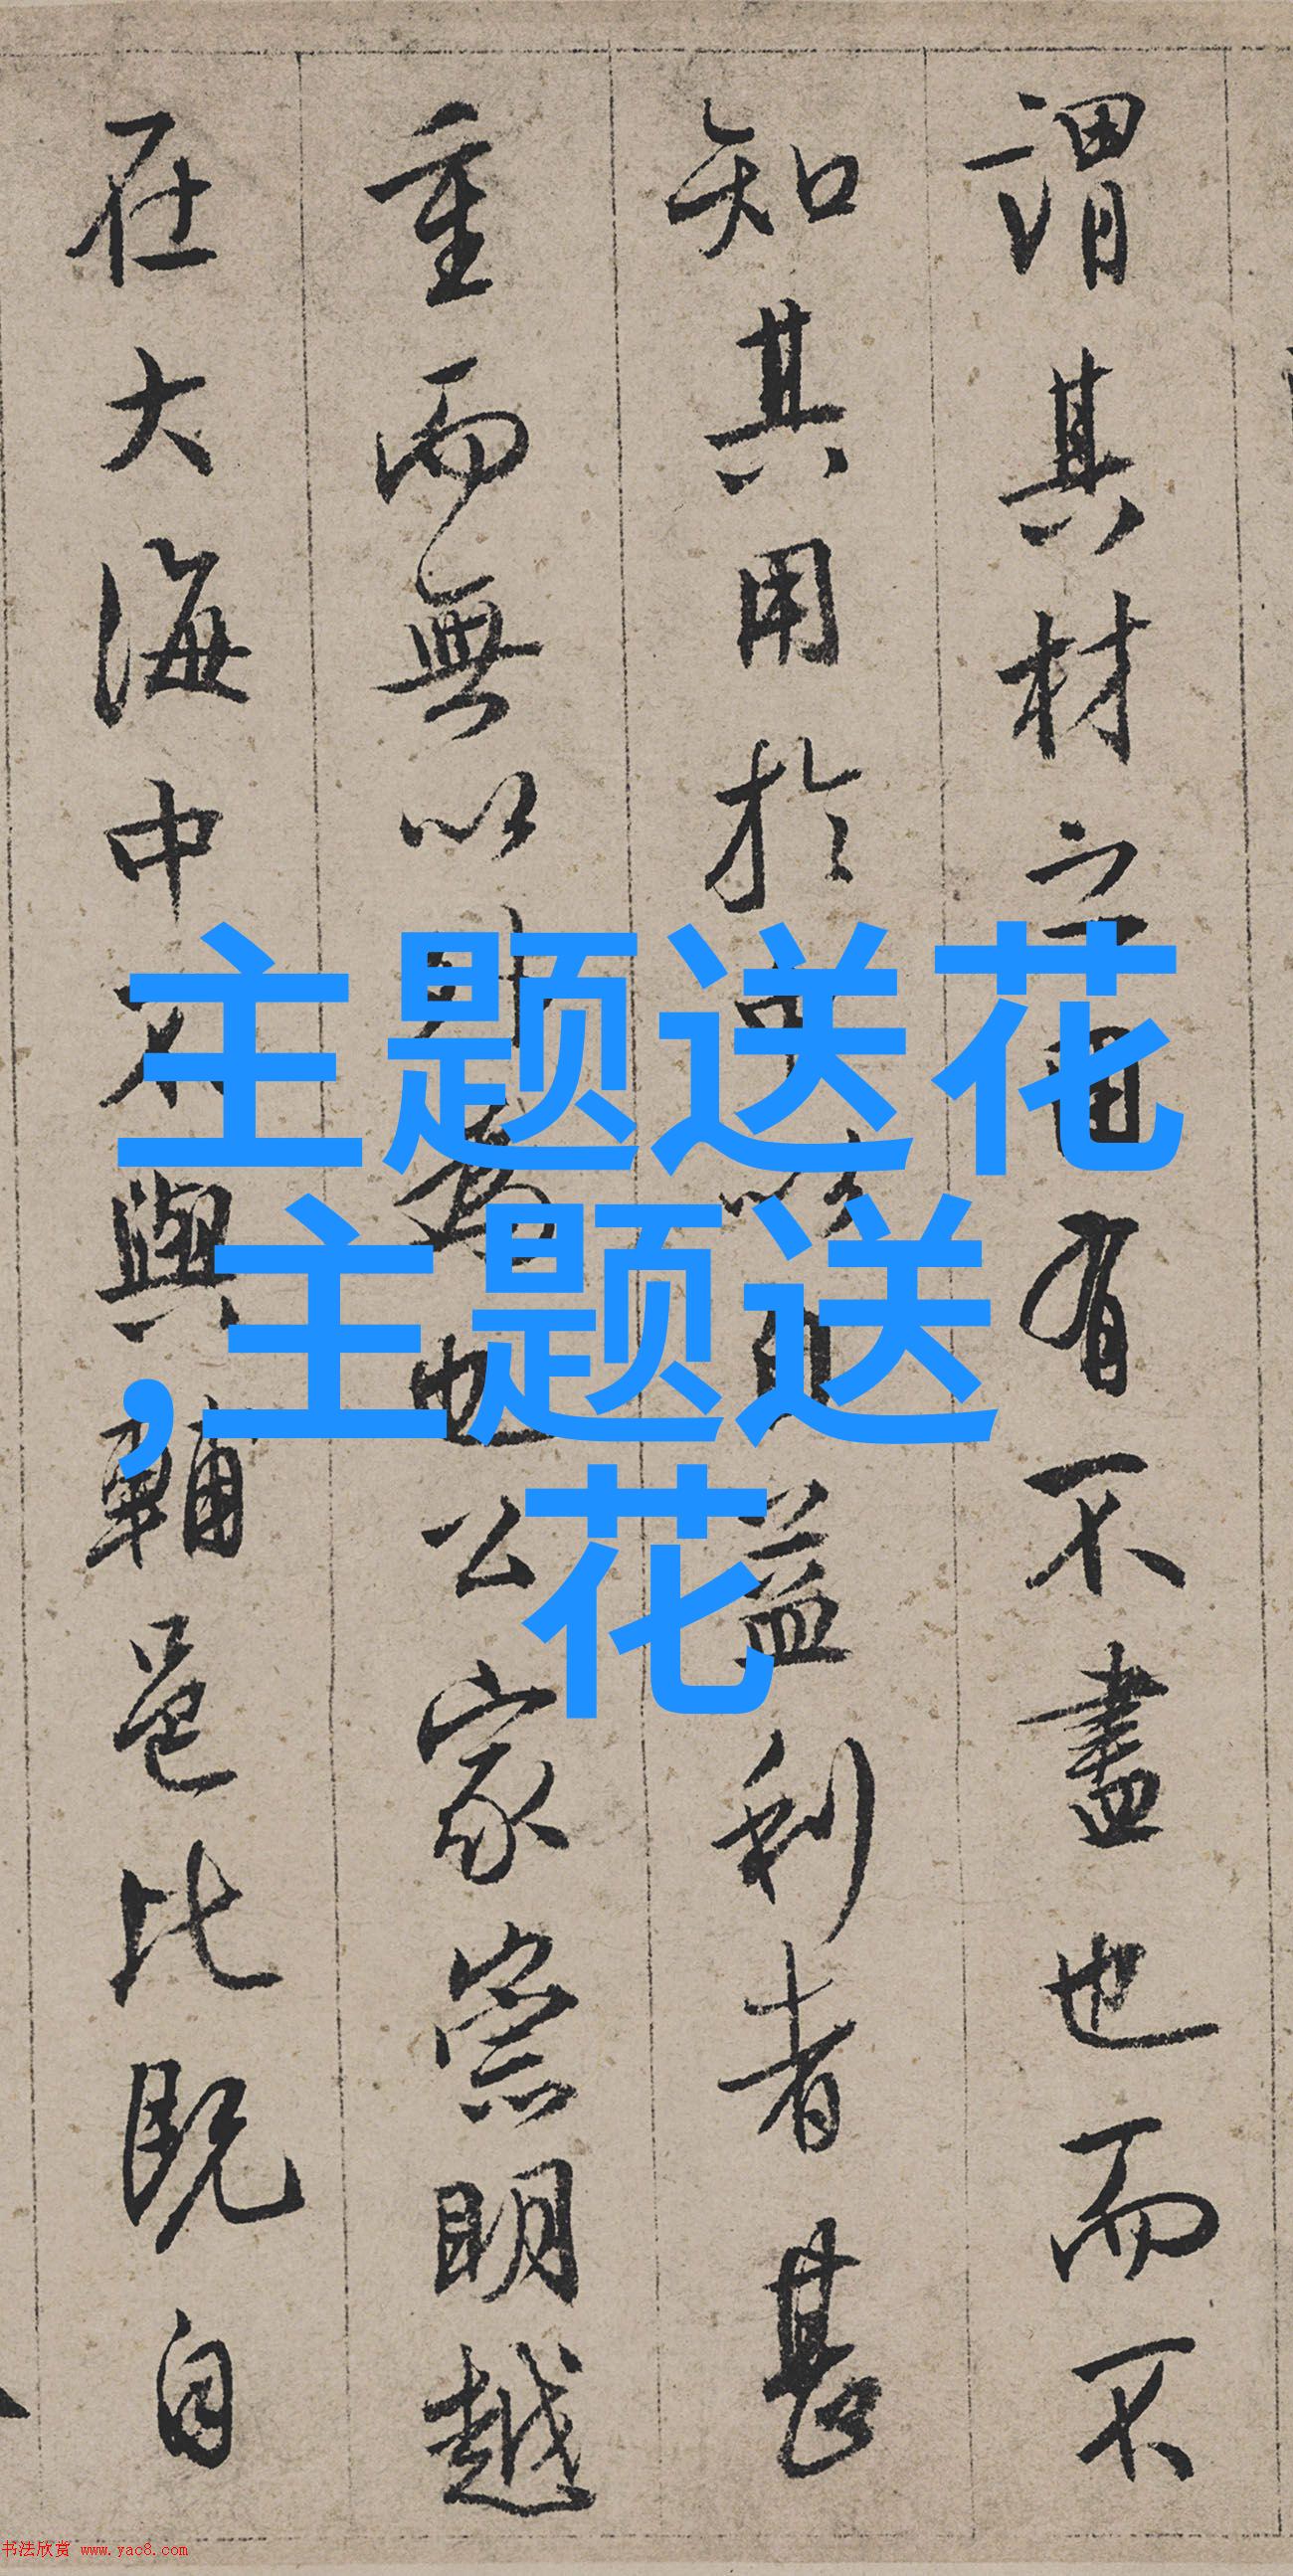 謂其材之用有不盡也而不
知其用於益利者甚
重而無以也公家崇明越
在大海中不與輔邑比既自
主题送花
,主题送
花
书法欣赏 www.yac8.com